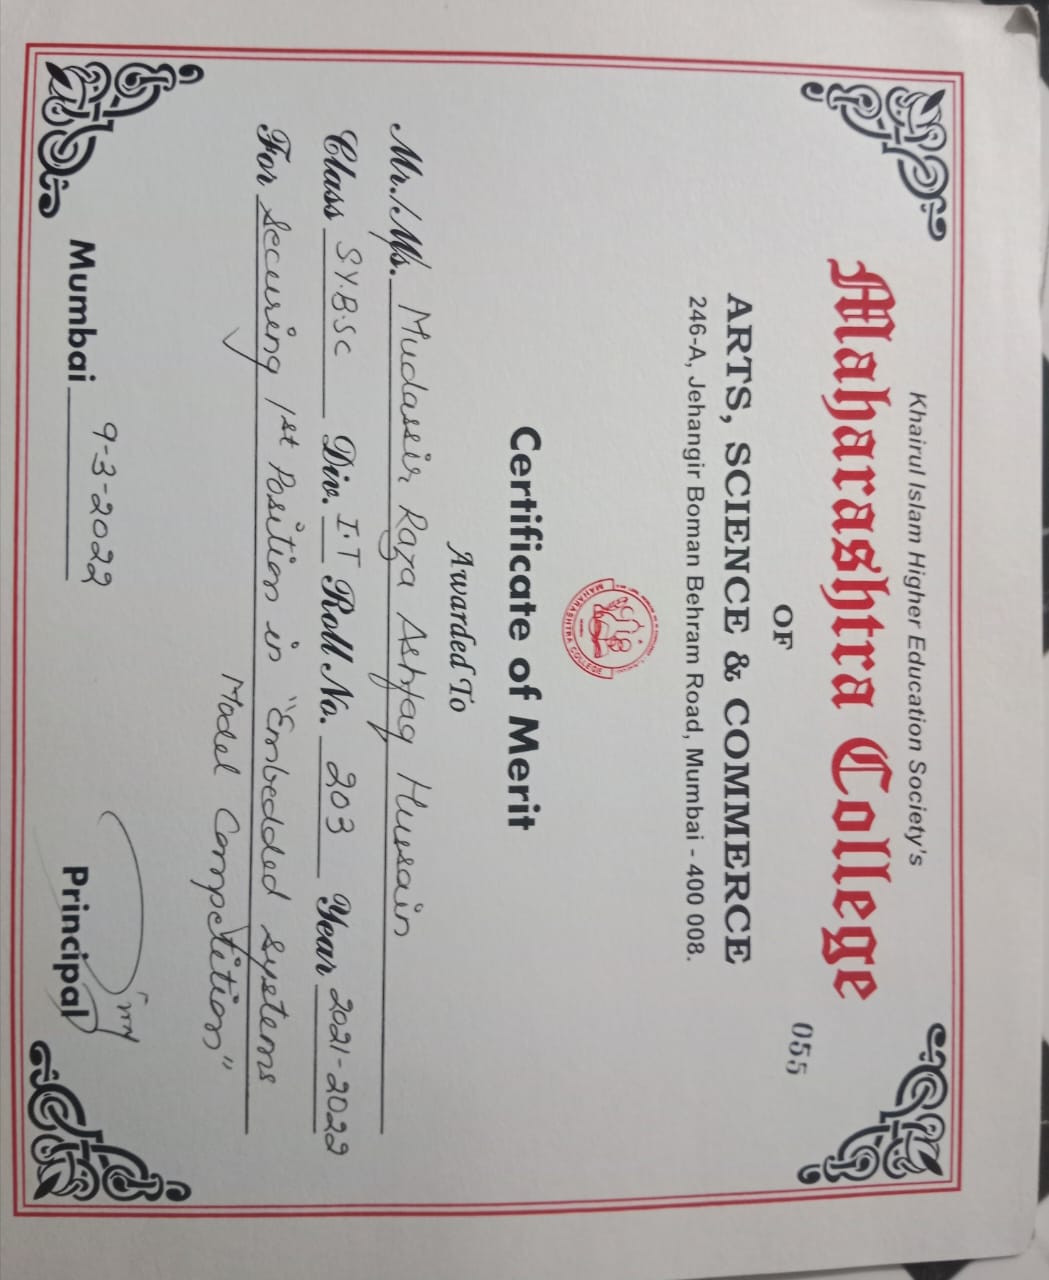 Khairul Islam Higher Education Society's
Maharashtra College
055
OF
ARTS, SCIENCE & COMMERCE
246-A, Jehangir Boman Behram Road, Mumbai - 400 008.
MAHARASHTRA COLLEGE
Certificate of Merit
Awarded To
Mr./Ms. Mudassir Raza Ashfaq Husain
Class S.Y.B.Sc Div. I.T Roll No. 203 Year 2021-2022
For Securing 1st Position in "Embedded systems
Model Competition"
Mumbai 9-3-2022
Principal